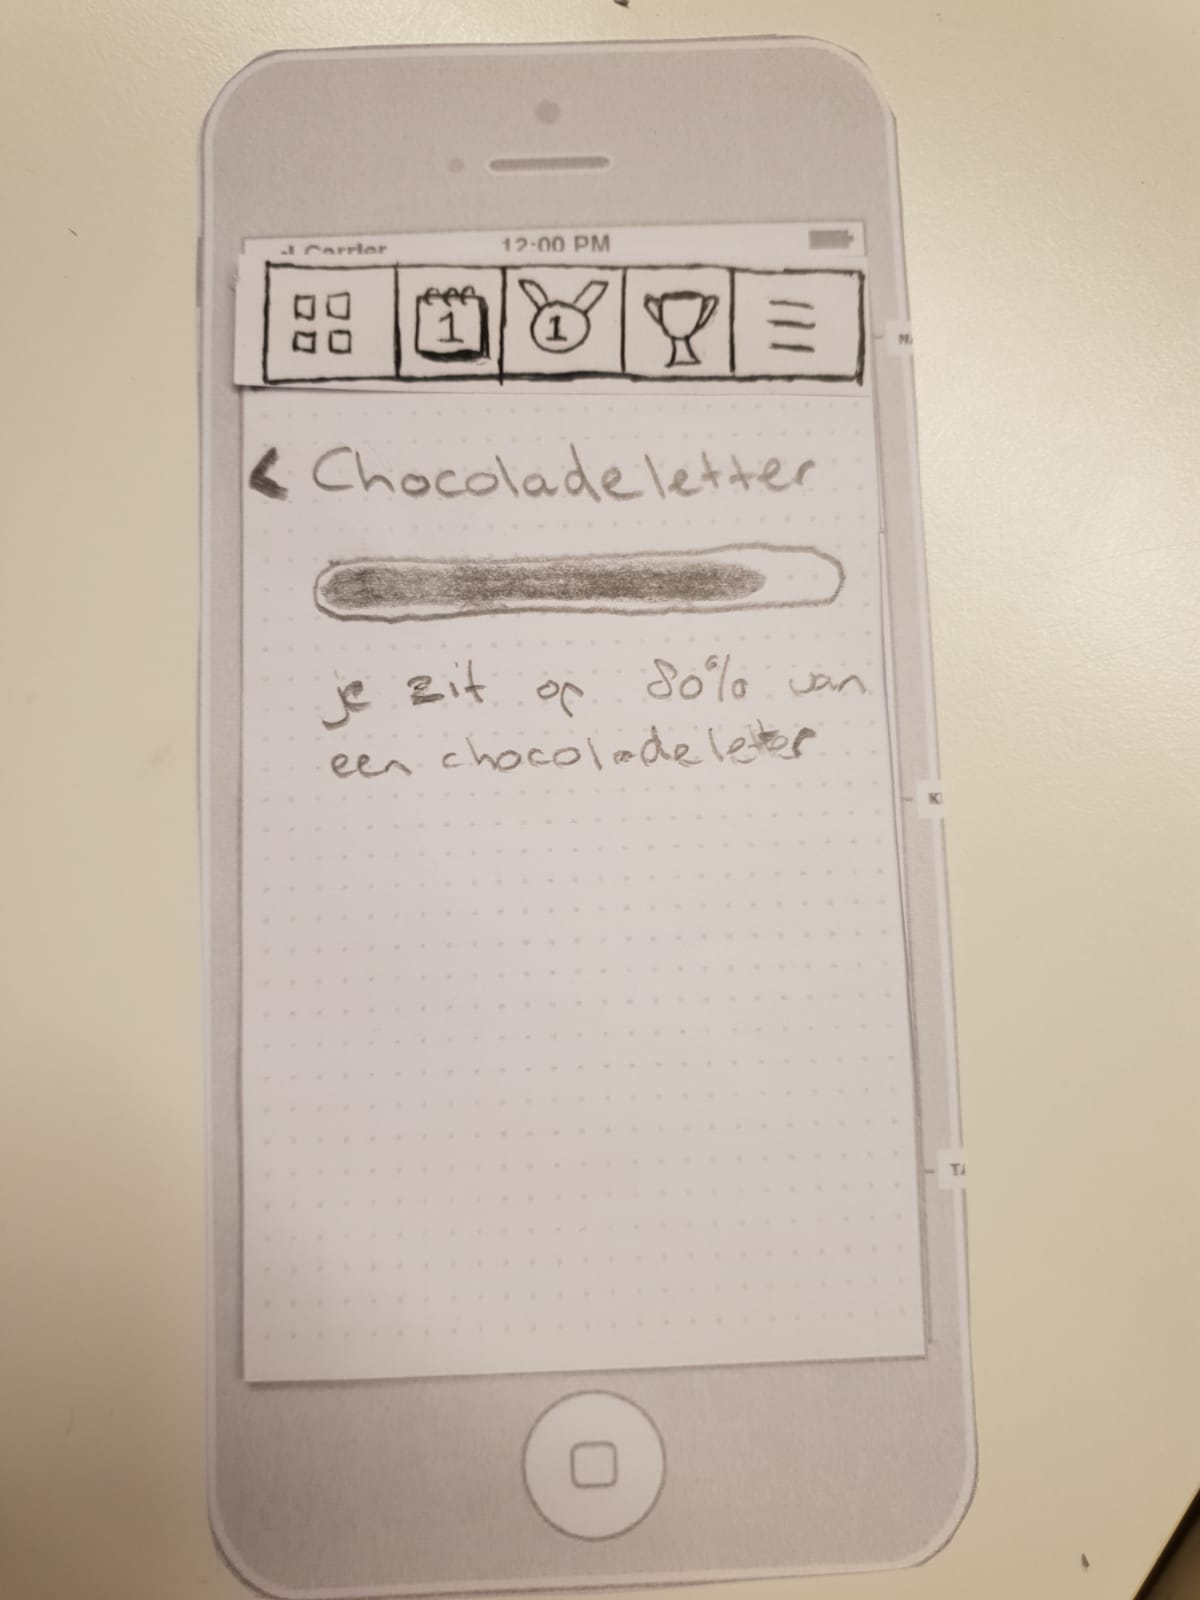 Carrier 12:00 PM
1 1
< Chocoladeletter
je zit op 80% van
een chocoladeletter